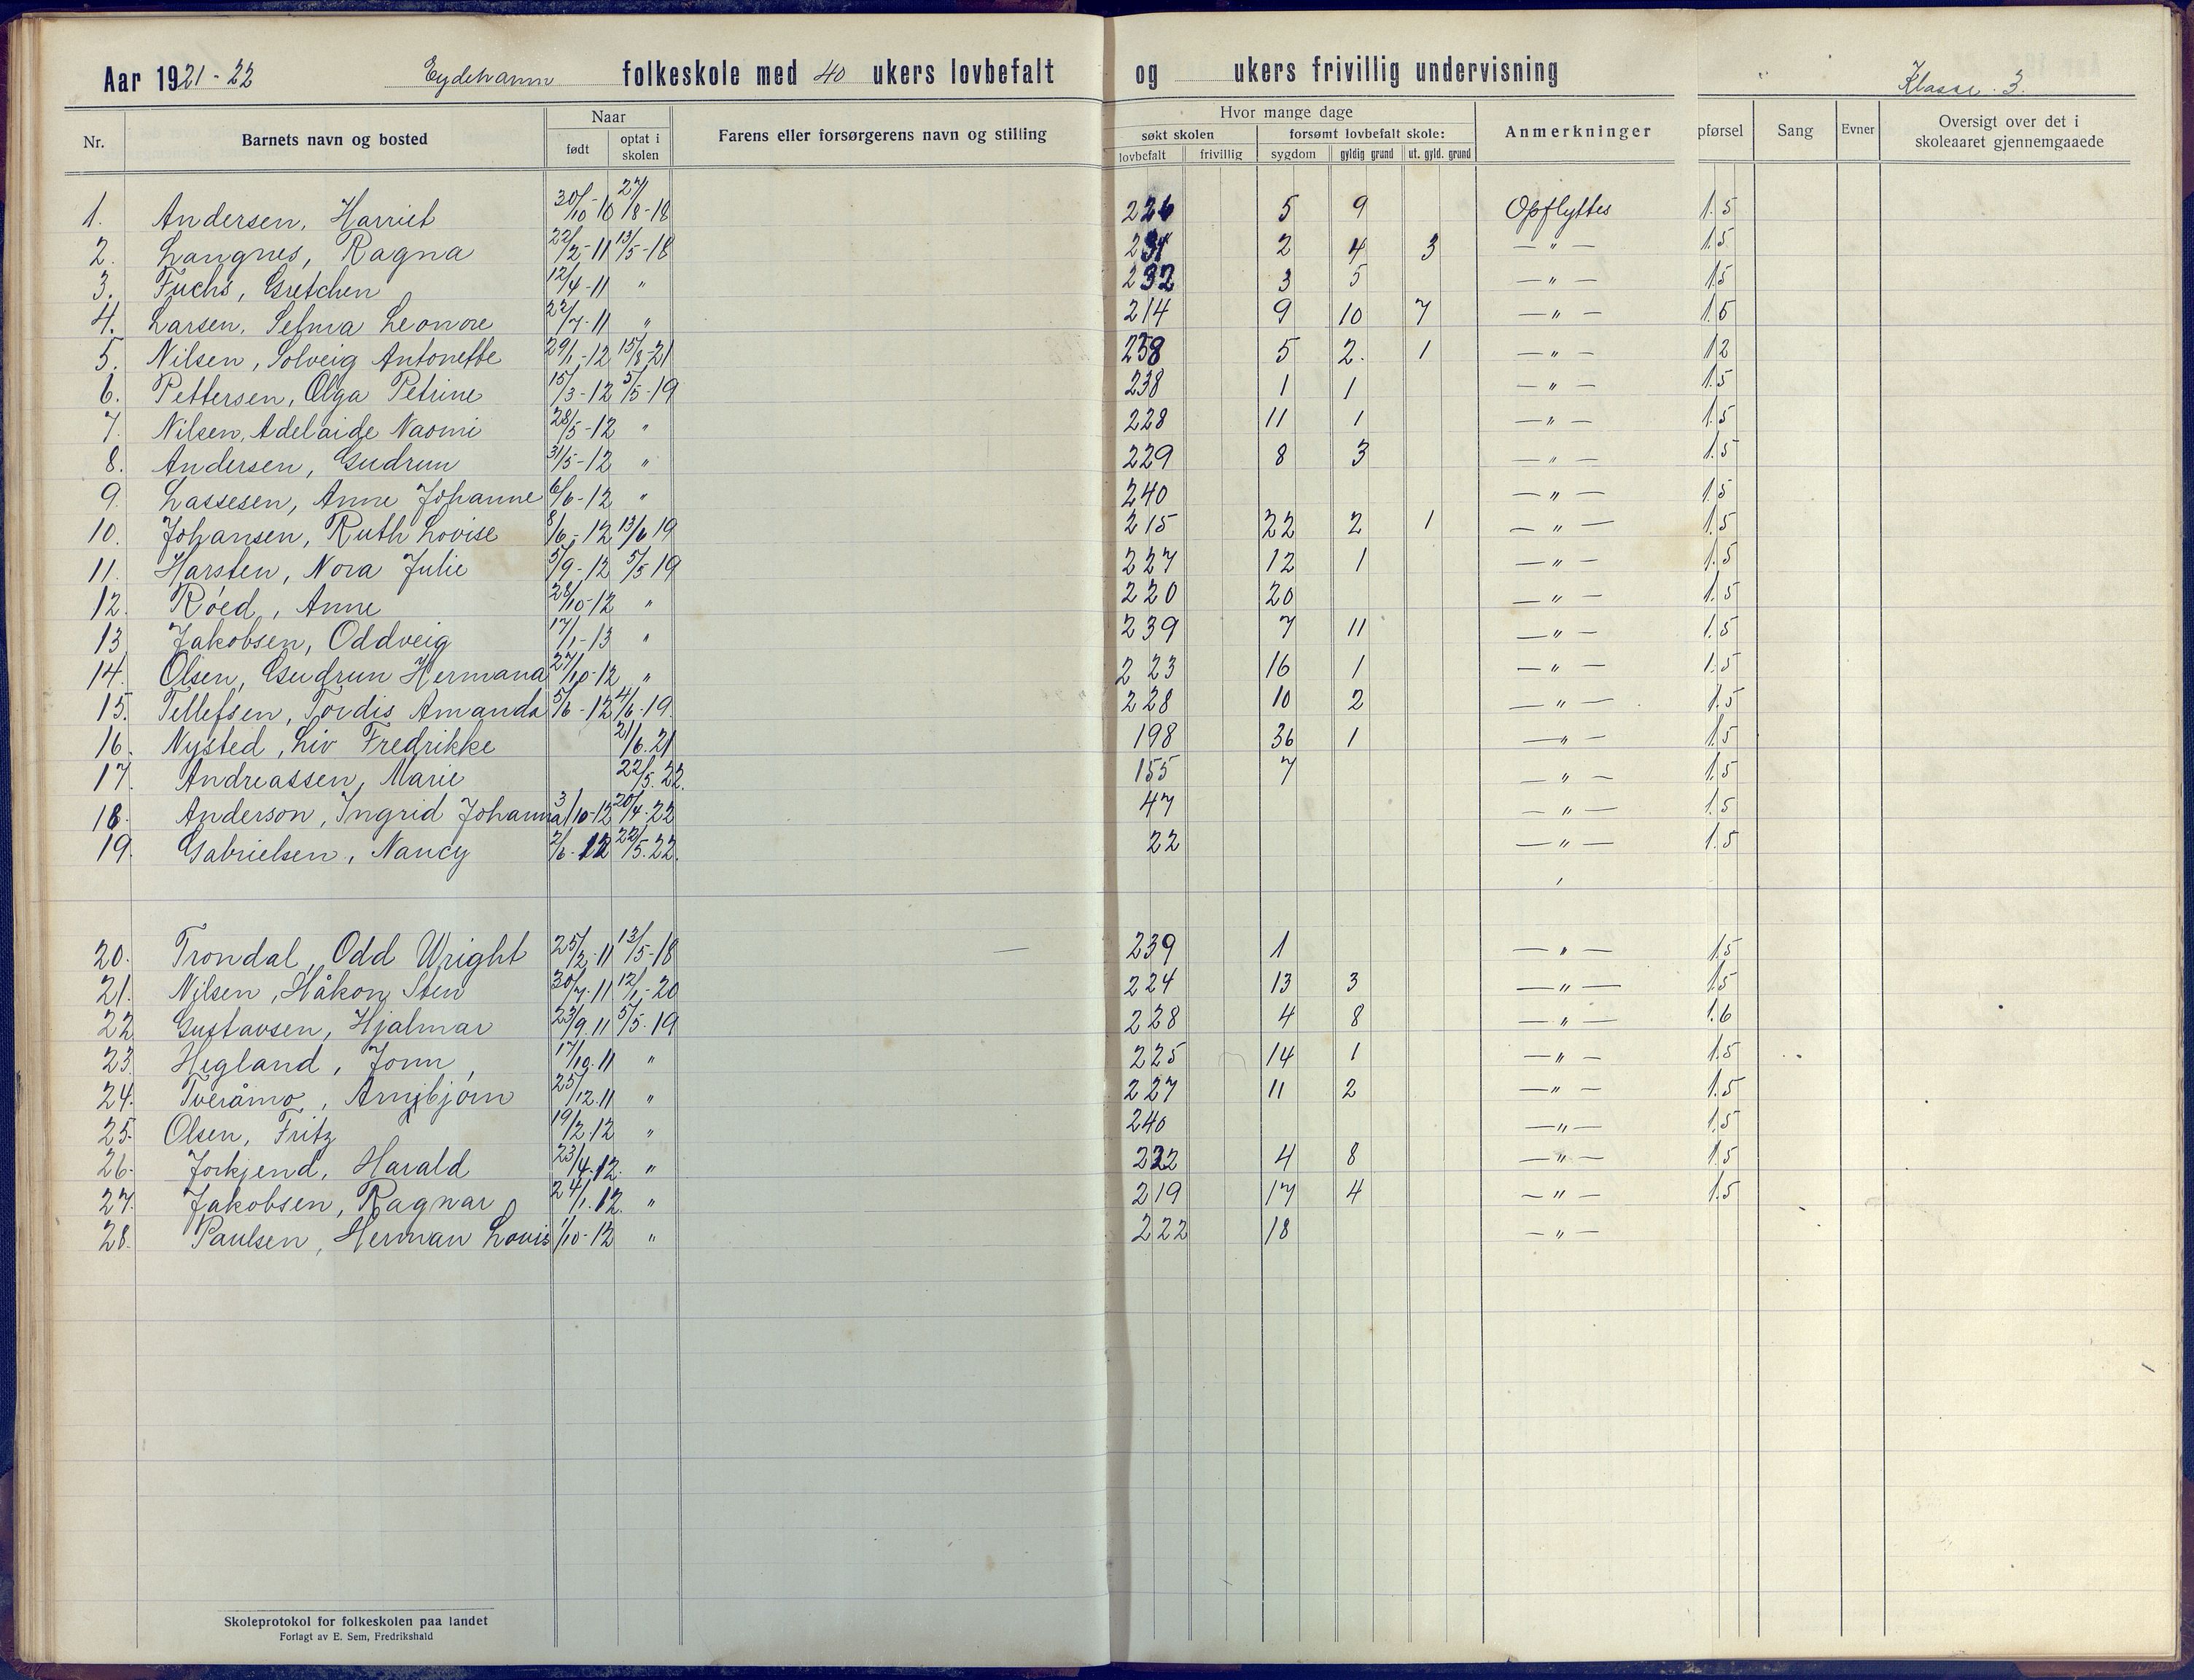 Aar 1921-22 Eydehavn folkeskole med 40 ukers lovbefalt og ukers frivillig undervisning Klasse 3.
Nr. Barnets navn og bosted Naar Farens eller forsørgerens navn og stilling Hvor mange dage Anmerkninger pførsel Sang Evner Oversigt over det i skoleaaret gjennemgaaede
født optat i skolen søkt skolen forsømt lovbefalt skole:
lovbefalt frivillig sygdom gyldig grund ut. gyld. grund
1. Andersen, Harriet 30/10-10 27/8-18 226 5 9 Opflyttes 1.5
2. Langnes, Ragna 22/2-11 13/5-18 231 2 4 3 — " — 1.5
3. Fuchs, Gretchen 12/4-11 " 232 3 5 — " — 1.5
4. Larsen, Selma Leonore 22/7-11 " 214 9 10 7 — " — 1.5
5. Nilsen, Solveig Antonette 29/1-12 15/8-21 238 5 2. 1 — " — 1.2
6. Pettersen, Olga Petrine 15/3-12 5/5-19 238 1 1 — " — 1.5
7. Nilsen, Adelaide Naomi 28/5-12 " 228 11 1 — " — 1.5
8. Andersen, Gudrun 31/5-12 " 229 8 3 — " — 1.5
9. Lassesen, Anne Johanne 6/6-12 " 240 — " — 1.5
10. Johansen, Ruth Lovise 8/6-12 13/6 19 215 22 2 1 — " — 1.5
11. Harsten, Nora Julie 5/9-12 5/5 19 227 12 1 — " — 1.5
12. Röed, Anne 28/10-12 " 220 20 — " — 1.5
13 Jakobsen, Oddveig 17/1-13 " 239 7 11 — " — 1.5
14. Olsen, Gudrun Hermana 27/10-12 " 223 16 1 — " — 1.5
15. Tellefsen, Tordis Amanda 5/6-12 4/6-19. 228 10 2 — " — 1.5
16. Nysted, Liv Fredrikke 21/6.21 198 36 1 — " — 1.5
17. Andreassen, Marie 22/5.22. 155 7 — " — 1.5
18. Anderson, Ingrid Johanna 3/10-12 20/4-22 47 — " — 1.5
19. Gabrielsen, Nancy 2/6-12 22/5.22. 22 — " — 1.5
20. Trondal, Odd Wright 25/2-11 13/5-18 239 1 — " — 1.5
21. Nilsen, Håkon Sten 30/7.11 12/1-20 224 13 3 — " — 1.5
22 Gustavsen, Hjalmar 23/9.11 5/5.19 228 4 8 — " — 1.6
23. Hegland, Jonn, 17/10.11 " 225 14 1 — " — 1.5
24. Tveråmo, Arnjbjörn 25/12.11 " 227 11 2 — " — 1.5
25. Olsen, Fritz 19/2.12 " 240 — " — 1.5
26. Jorkjend, Harald 23/4.12. " 222 4 8 — " — 1.5
27. Jakobsen, Ragnar 24/1.12. " 219 17 4 — " — 1.5
28. Paulsen, Herman Louis 1/10-12 " 222 18 — " —
Skoleprotokol for folkeskolen paa landet
Forlagt av E. Sem, Fredrikshald